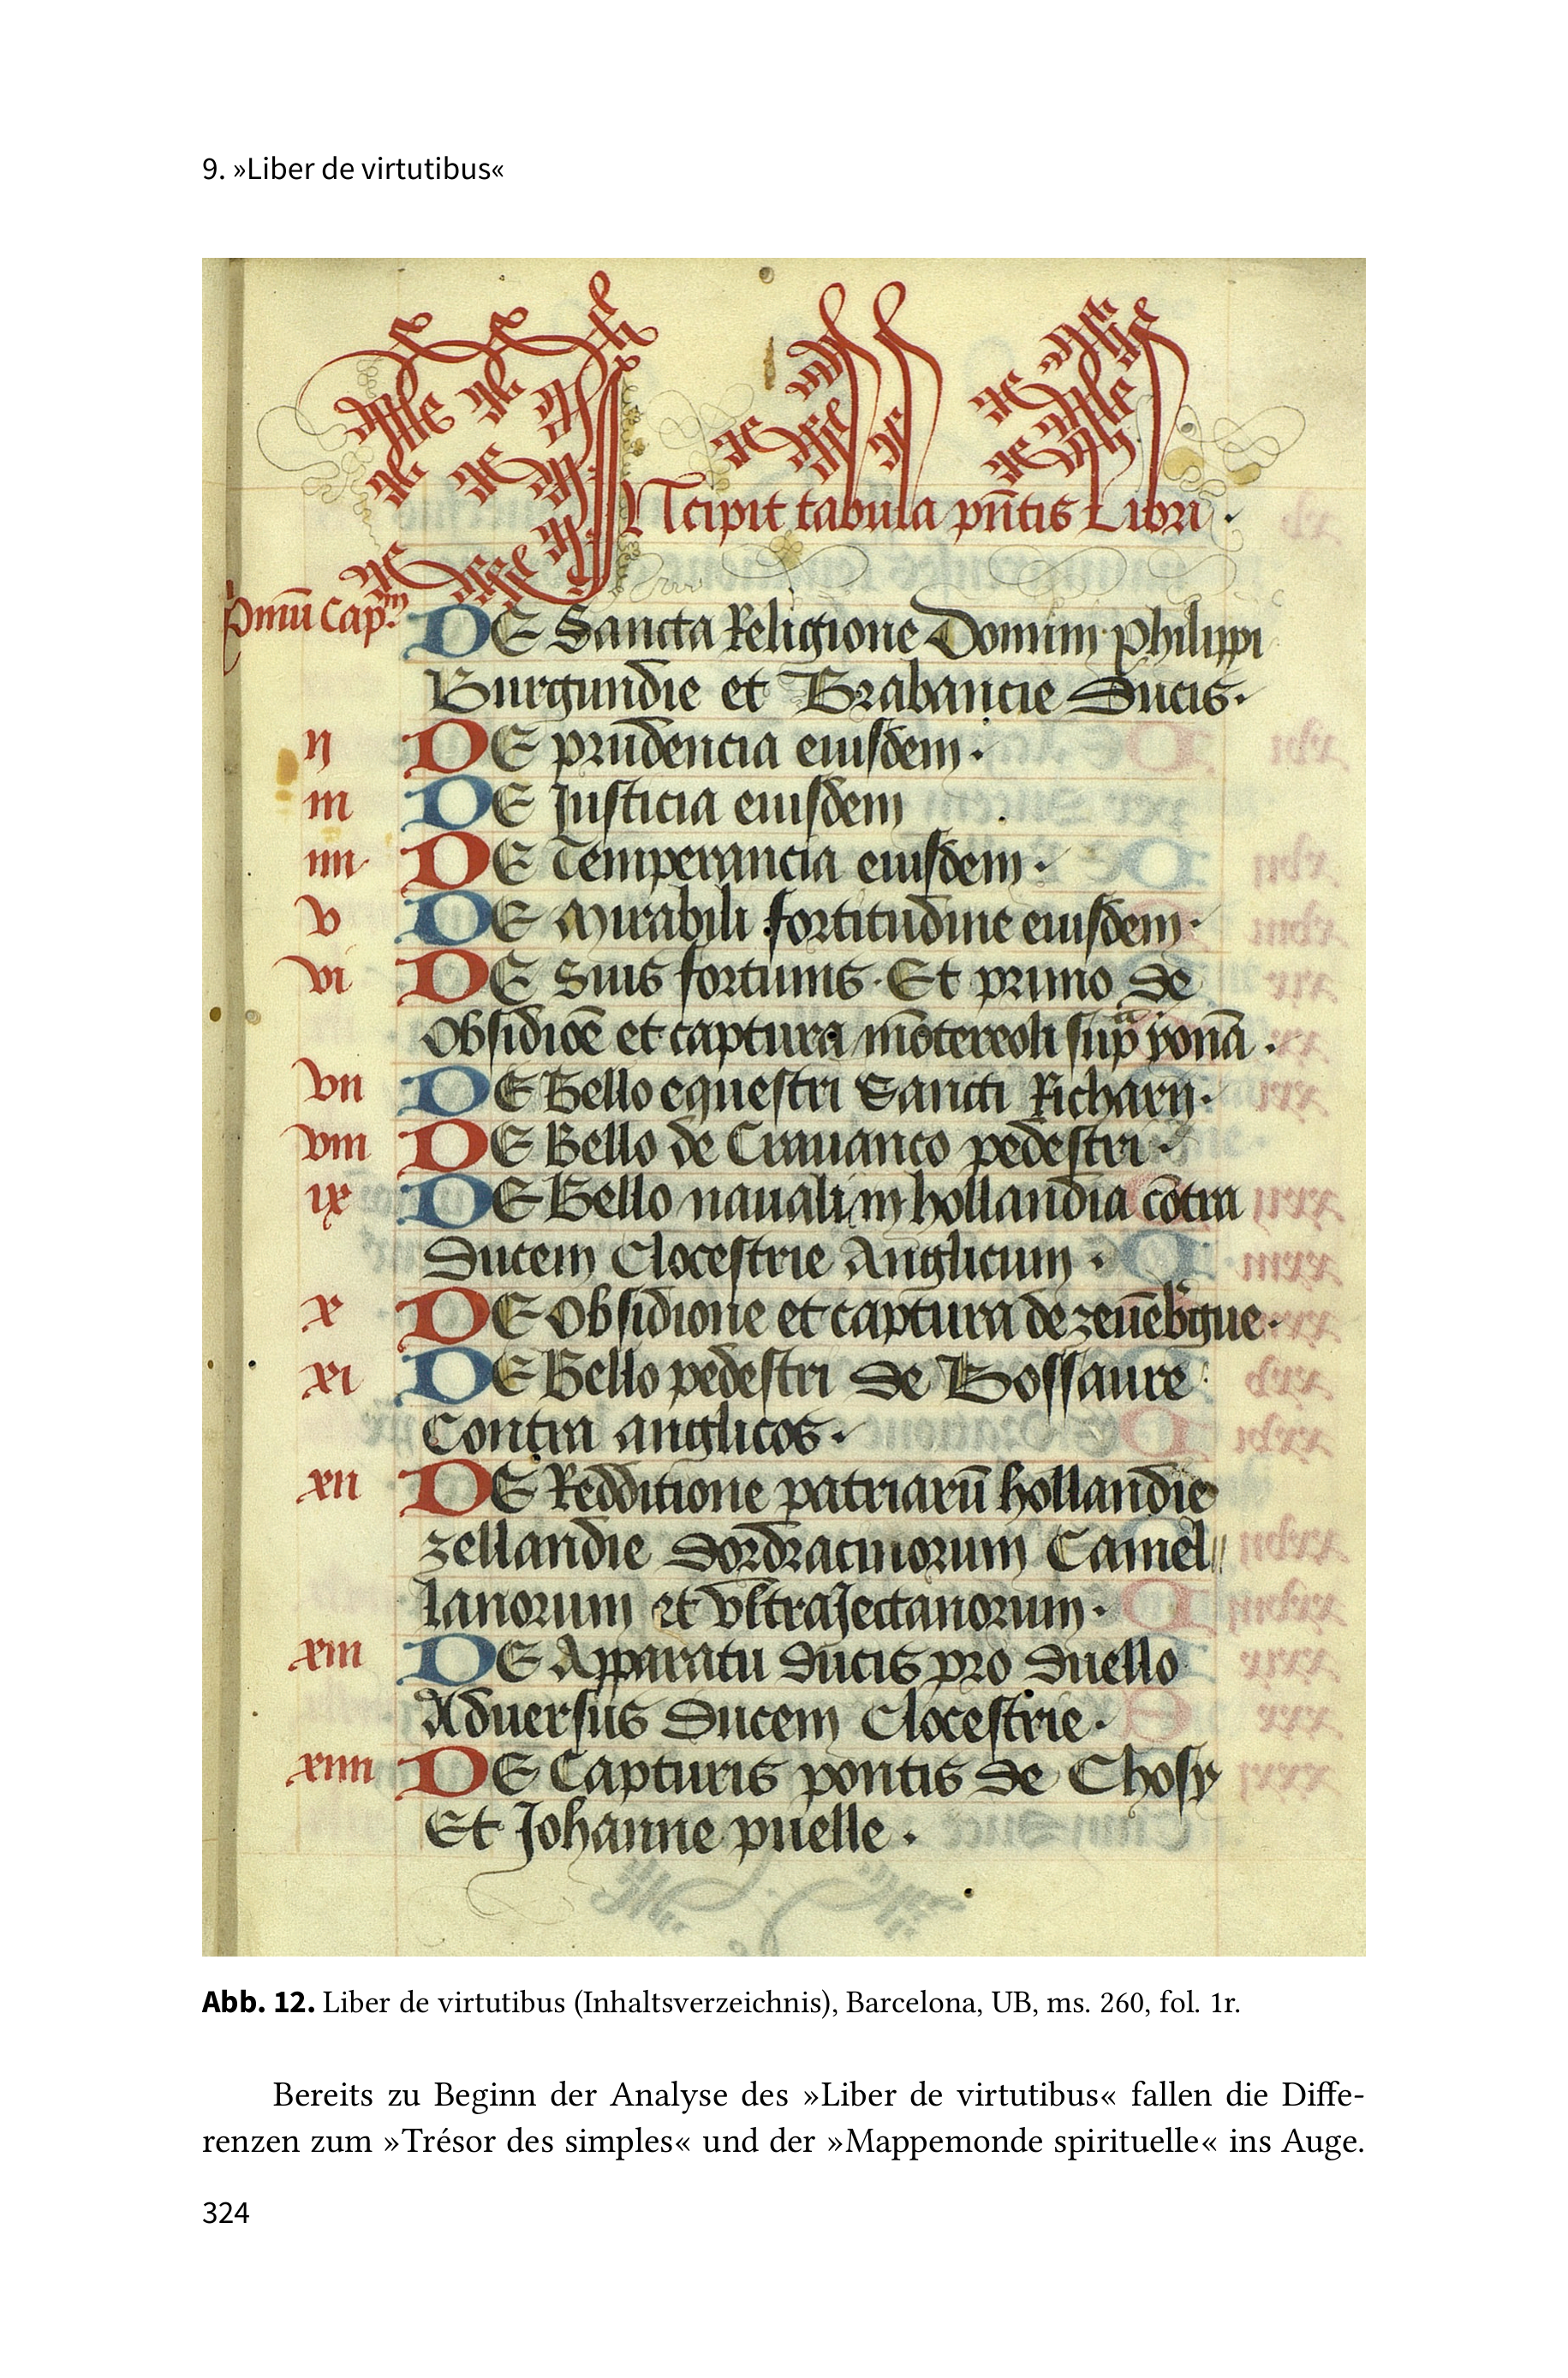 9. »Liber de virtutibus«
INcipit tabula pn̄tis Libri .
pmū cap.m DE Sancta Religione Domini philippi
Burgundie et Brabancie ducis.
ij DE prudencia eiusdem .
iii DE Justicia eiusdem
iiii DE Temperancia eiusdem .
v DE Mirabili fortitudine eiusdem .
vi DE Suis fortunis . Et primo de
Obsidiōe et captura mōtereoli sup̄ yonā .
vii DE Bello equestri Sancti Richarij .
viii DE Bello de Crauanco pedestri .
ix DE Bello nauali in hollandia cōtra
ducem Clocestrie Anglicum .
x DE Obsidione et captura de zeuēb'gue .
xi DE Bello pedestri de Bossaure
Contra anglicos .
xii DE Redditione patriarū hollandie
zellandie dordracinorum Camel
lanorum et vltraJectanorum .
xiii DE Apparatu ducis pro duello
Aduersus ducem Clocestrie .
xiiii DE Capturis pontis de Choisy
Et Johanne puelle .
Abb. 12. Liber de virtutibus (Inhaltsverzeichnis), Barcelona, UB, ms. 260, fol. 1r.
Bereits zu Beginn der Analyse des »Liber de virtutibus« fallen die Diffe-
renzen zum »Trésor des simples« und der »Mappemonde spirituelle« ins Auge.
324